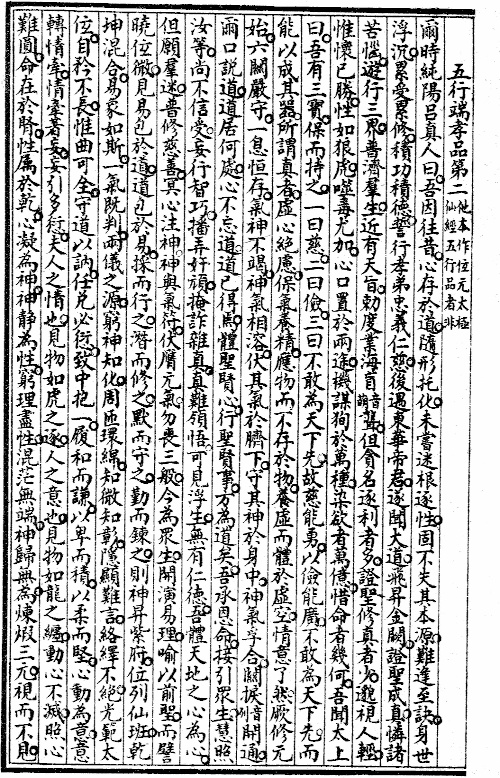 五行端孝品第二
他本作位元太極仙經五行品者非
爾時純陽呂真人曰吾因往昔心存於道隨形托化未嘗迷根逐性固不失其本源難逢至訣身世
浮沉累受累修積功積德誓行孝弟忠義仁慈後遇東華帝君遂聞大道飛昇金闕證聖成真憐諸
苦惱遊行三界普濟羣生近有天旨勅度業海盲聾但貪名逐利者多證聖修真者少邈視人輕
惟懷己勝性如狼虎噬毒尤加心口置於兩途機謀狥於萬種染欲者萬億惜命者幾何吾聞太上
曰吾有三寶保而持之一曰慈二曰儉三曰不敢為天下先故慈能勇以儉能廣不敢為天下先而
能以成其器所謂真者虛心絕慮保氣養精應物而不存於物養虛而體於虛空情意了然厥修元
始六關嚴守一息恒存氣神不竭神氣相溶伏其氣於臍下守其神於身中神氣孚合關捩音例開通
爾口說道道居何處心不忘道道已得焉體聖賢心行聖賢事方為道矣吾承恩命接引眾生慧照
汝等尚不信受妄行智巧播弄奸頑掩詐雜真真難領悟可見浮生無有仁德吾體天地之心為心
但願羣迷普修慈善冥心注神神與氣符伏膺元氣勿喪三般今為眾生開演易理喻以前聖而譬
曉位微見易包於道道包於易採而行之潛而修之默而守之勤而鍊之則神昇紫府位列仙班乾
坤混合易象如斯一氣既判兩儀之源窮神知化周匝環綿知微知彰隱顯難言絡繹不絕光範太
位自矜不長惟曲可全守道以訥任兌必愆致中抱一履和而謙以卑而積以柔而堅心動為意意
轉情牽情牽着妄妄引多衍夫人之情也見物如虎之逐人之意也見物如龍之纏動心不滅照心
難圓命在於腎性屬於乾心凝為神神靜為性窮理盡性混茫無端神歸無為煉煅三元視而不見